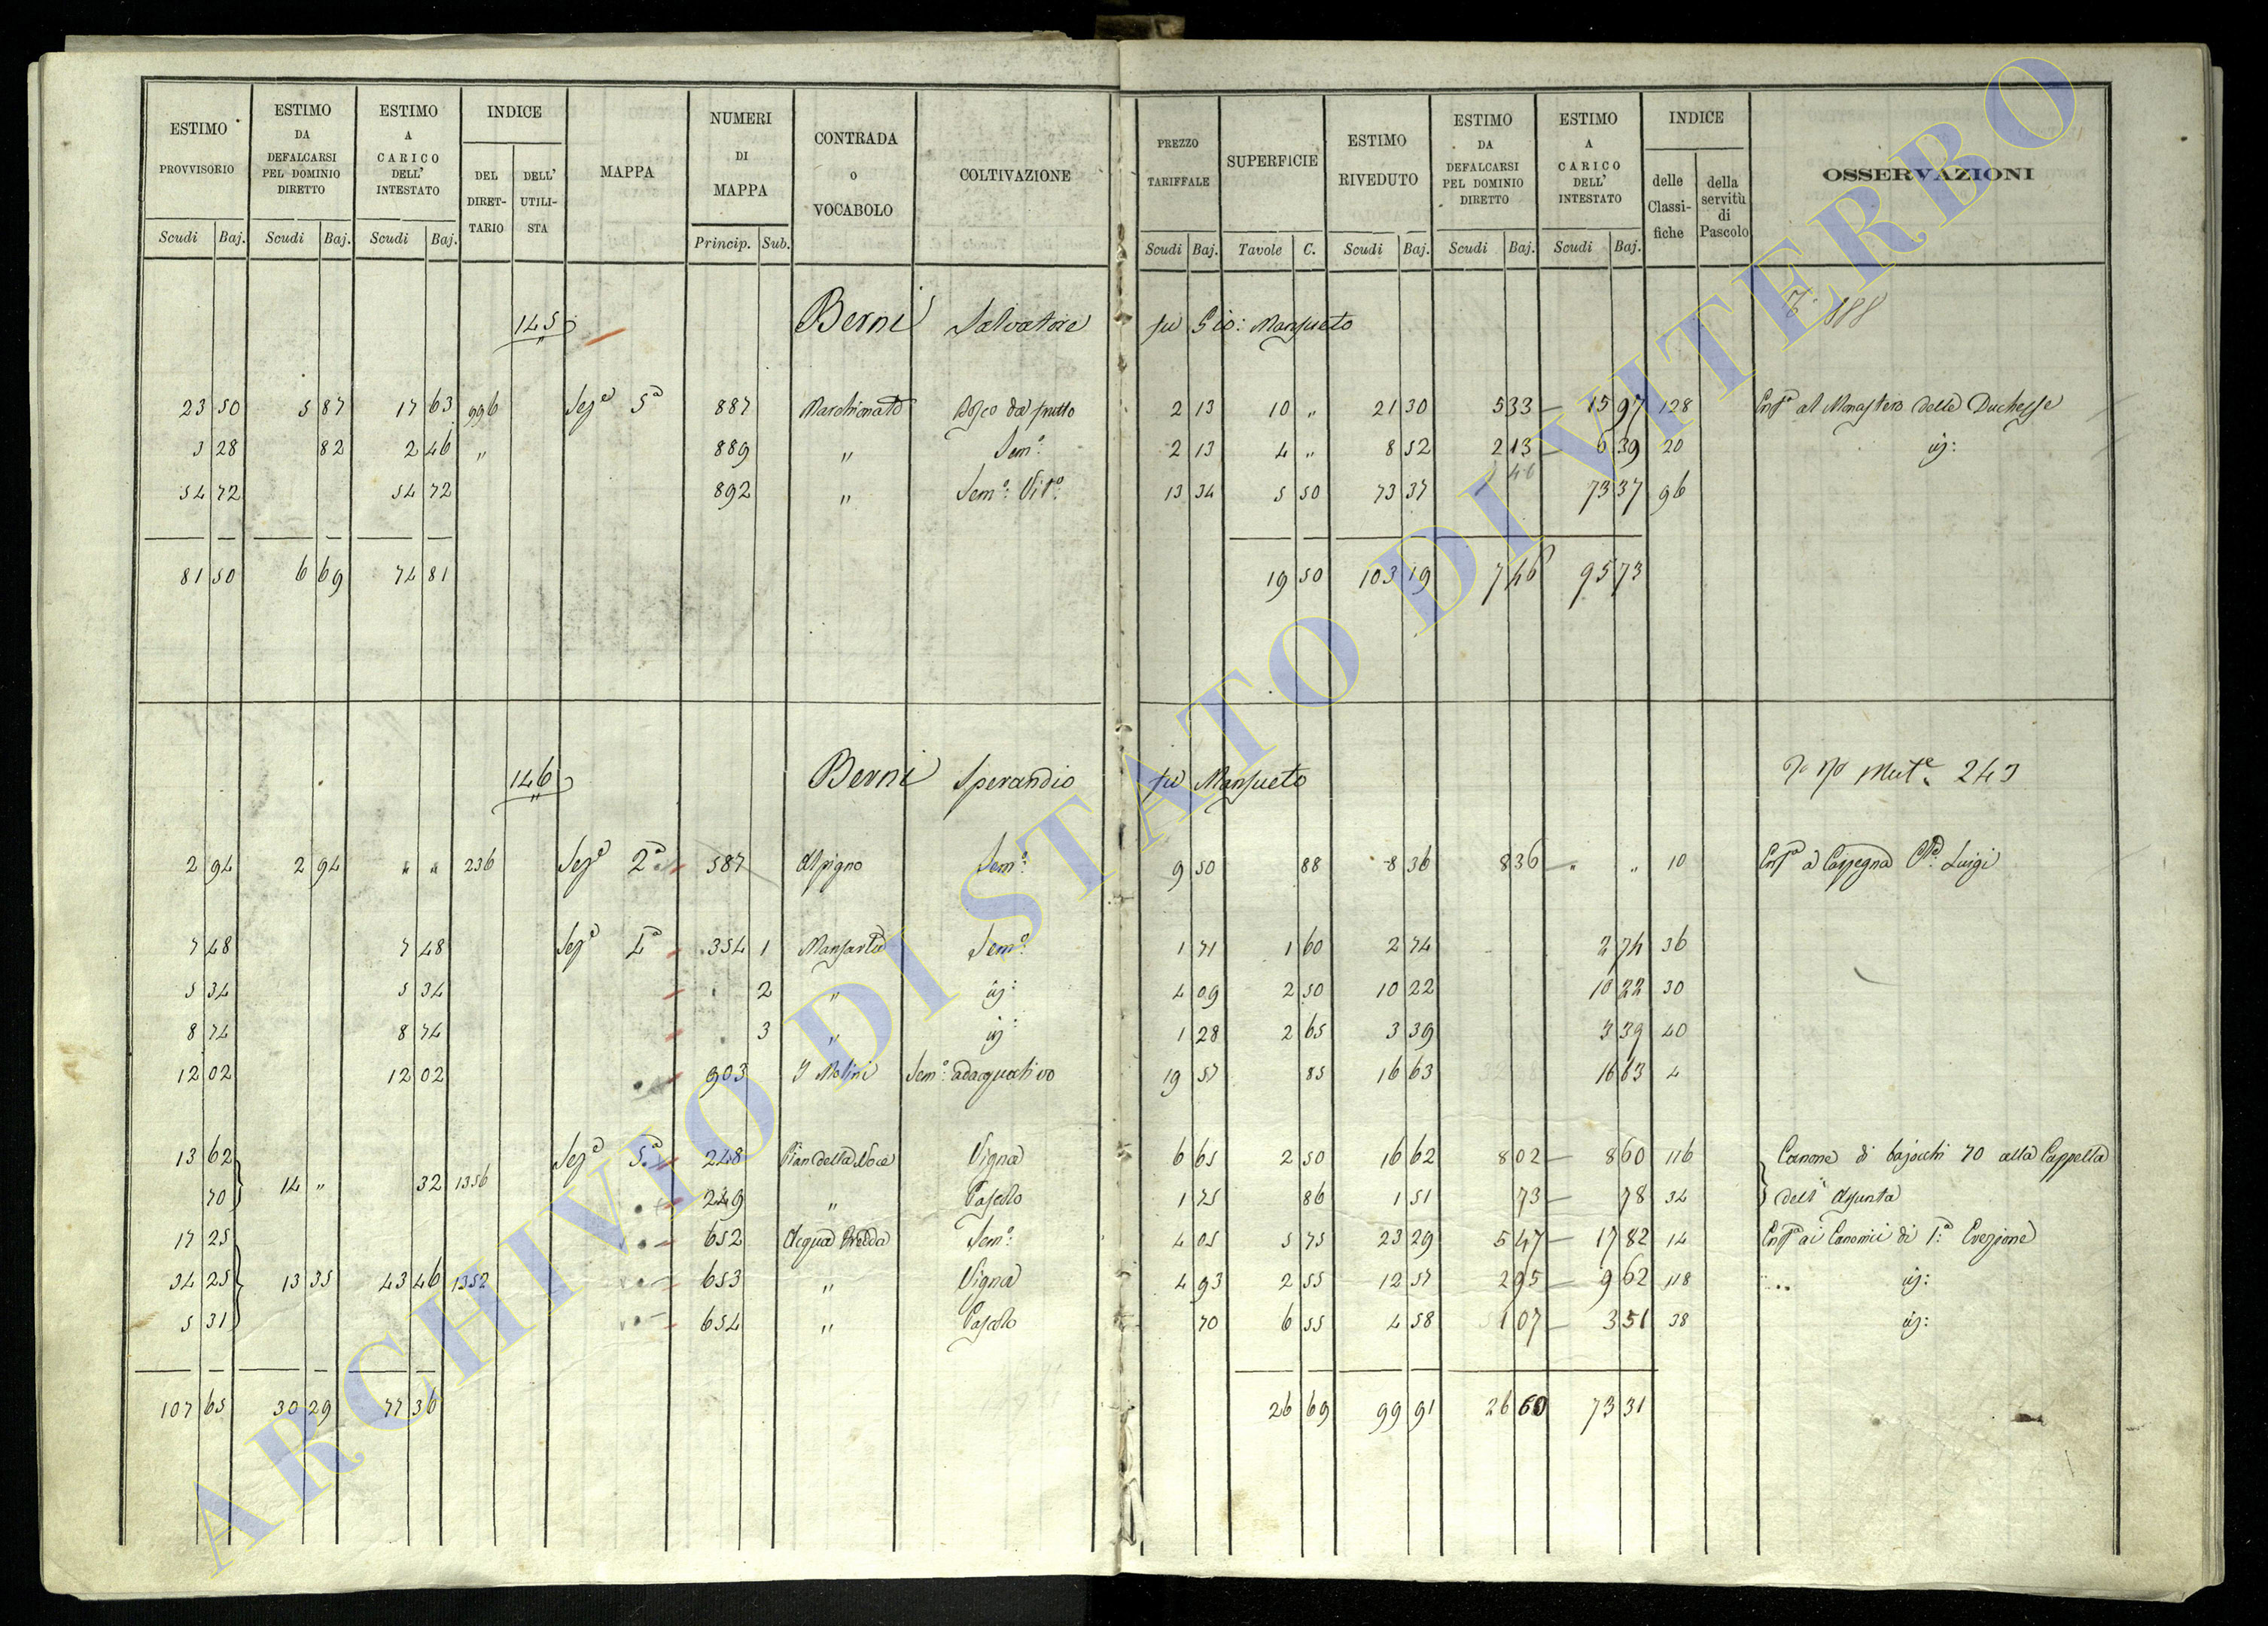 ESTIMO PROVVISORIO | ESTIMO DA DEFALCARSI PEL DOMINIO DIRETTO | ESTIMO A CARICO DELL' INTESTATO | INDICE | MAPPA | NUMERI DI MAPPA | CONTRADA o VOCABOLO | COLTIVAZIONE | PREZZO TARIFFALE | SUPERFICIE | ESTIMO RIVEDUTO | ESTIMO DA DEFALCARSI PEL DOMINIO DIRETTO | ESTIMO A CARICO DELL' INTESTATO | INDICE | OSSERVAZIONI
DEL DIRETTARIO | DELL' UTILISTA | delle Classifiche | della servitù di Pascolo
Scudi | Baj. | Scudi | Baj. | Scudi | Baj. | Princip. | Sub. | Scudi | Baj. | Tavole | C. | Scudi | Baj. | Scudi | Baj. | Scudi | Baj.
145 Berni Salvatore fu Gio: Mansueto 188
23 50 | 5 87 | 17 63 | 996 | Sez.e 5a | 887 | Marchionato | Bosco da frutto | 2 13 | 10 „ | 21 30 | 5 33 | 15 97 | 128 | Enf.a al Monastero delle Duchesse
3 28 | 82 | 2 46 | „ | 889 | „ | Sem.o | 2 13 | 4 „ | 8 52 | 2 13 | 6 39 | 20 | id:
54 72 | 54 72 | 892 | „ | Sem.o Vit.o | 13 34 | 5 50 | 73 37 | 73 37 | 96
81 50 | 6 69 | 74 81 | 19 50 | 103 19 | 7 46 | 95 73
146 Berni Sperandio fu Mansueto Mut.e 243
2 94 | 2 94 | „ „ | 236 | Sez.e 2a | 587 | Alpigno | Sem.o | 9 50 | 88 | 8 36 | 8 36 | „ „ | 10 | Enf.a a Cassegna Luigi
7 48 | 7 48 | Sez.e 4a | 354 | 1 | Mansarte | Sem.o | 1 71 | 1 60 | 2 74 | 2 74 | 36
5 34 | 5 34 | 2 | „ | id: | 4 09 | 2 50 | 10 22 | 10 22 | 30
8 74 | 8 74 | 3 | „ | id: | 1 28 | 2 65 | 3 39 | 3 39 | 40
12 02 | 12 02 | 903 | I Molini | Sem.o adacquativo | 19 57 | 85 | 16 63 | 16 63 | 4
13 62 | Sez.e 5a | 248 | Pian della Noce | Vigna | 6 65 | 2 50 | 16 62 | 8 02 | 8 60 | 116 | Canone di bajocchi 70 alla Cappella
70 | 14 „ | 32 | 1356 | 249 | „ | Pascolo | 1 75 | 86 | 1 51 | 73 | 78 | 34 | dell' Assunta
17 25 | 652 | Acqua Fredda | Sem.o | 4 05 | 5 75 | 23 29 | 5 47 | 17 82 | 14 | Enf.a ai Canonici di 1a Erezione
34 25 | 13 35 | 43 46 | 1352 | 653 | „ | Vigna | 4 93 | 2 55 | 12 57 | 2 95 | 9 62 | 118 | id:
5 31 | 654 | „ | Pascolo | 70 | 6 55 | 4 58 | 1 07 | 3 51 | 38 | id:
107 65 | 30 29 | 77 36 | 26 69 | 99 91 | 26 60 | 73 31
ARCHIVIO DI STATO DI VITERBO